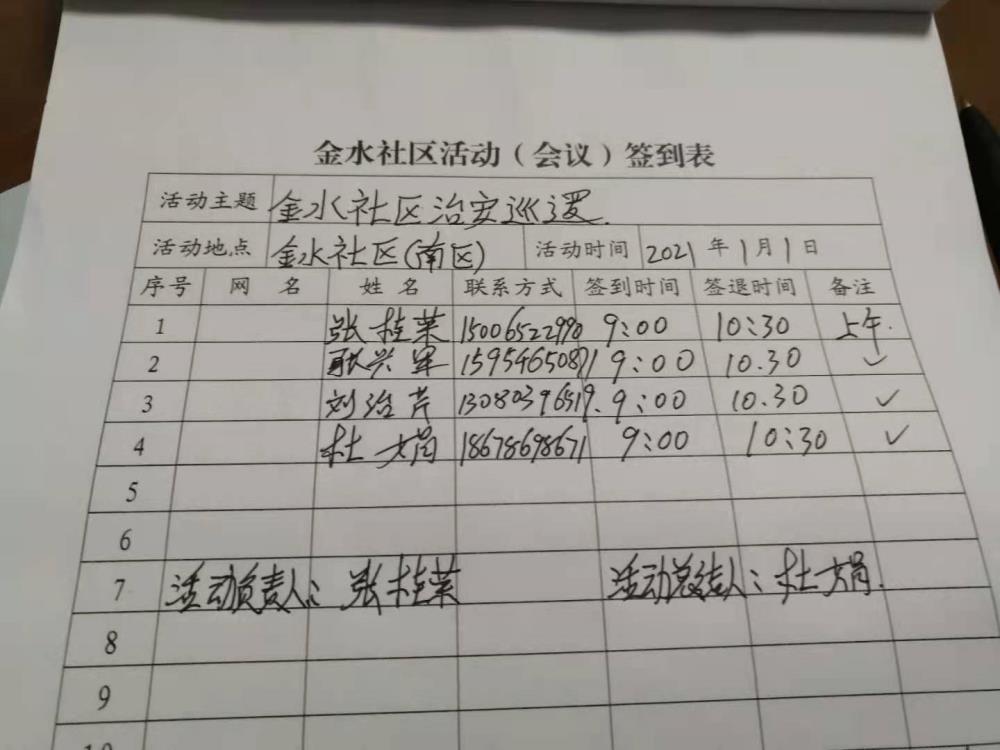 金水社区活动（会议）签到表
活动主题 金水社区治安巡逻
活动地点 金水社区(南区) 活动时间 2021年1月1日
序号 网名 姓名 联系方式 签到时间 签退时间 备注
1 张桂荣 15006522990 9:00 10:30 上午.
2 耿兴军 15954650871 9:00 10.30 ✓
3 刘治芹 13080396519. 9:00 10.30 ✓
4 杜娟 18678698671 9:00 10:30 ✓
5
6
7 活动负责人: 张桂荣 活动总结人: 杜娟.
8
9
10